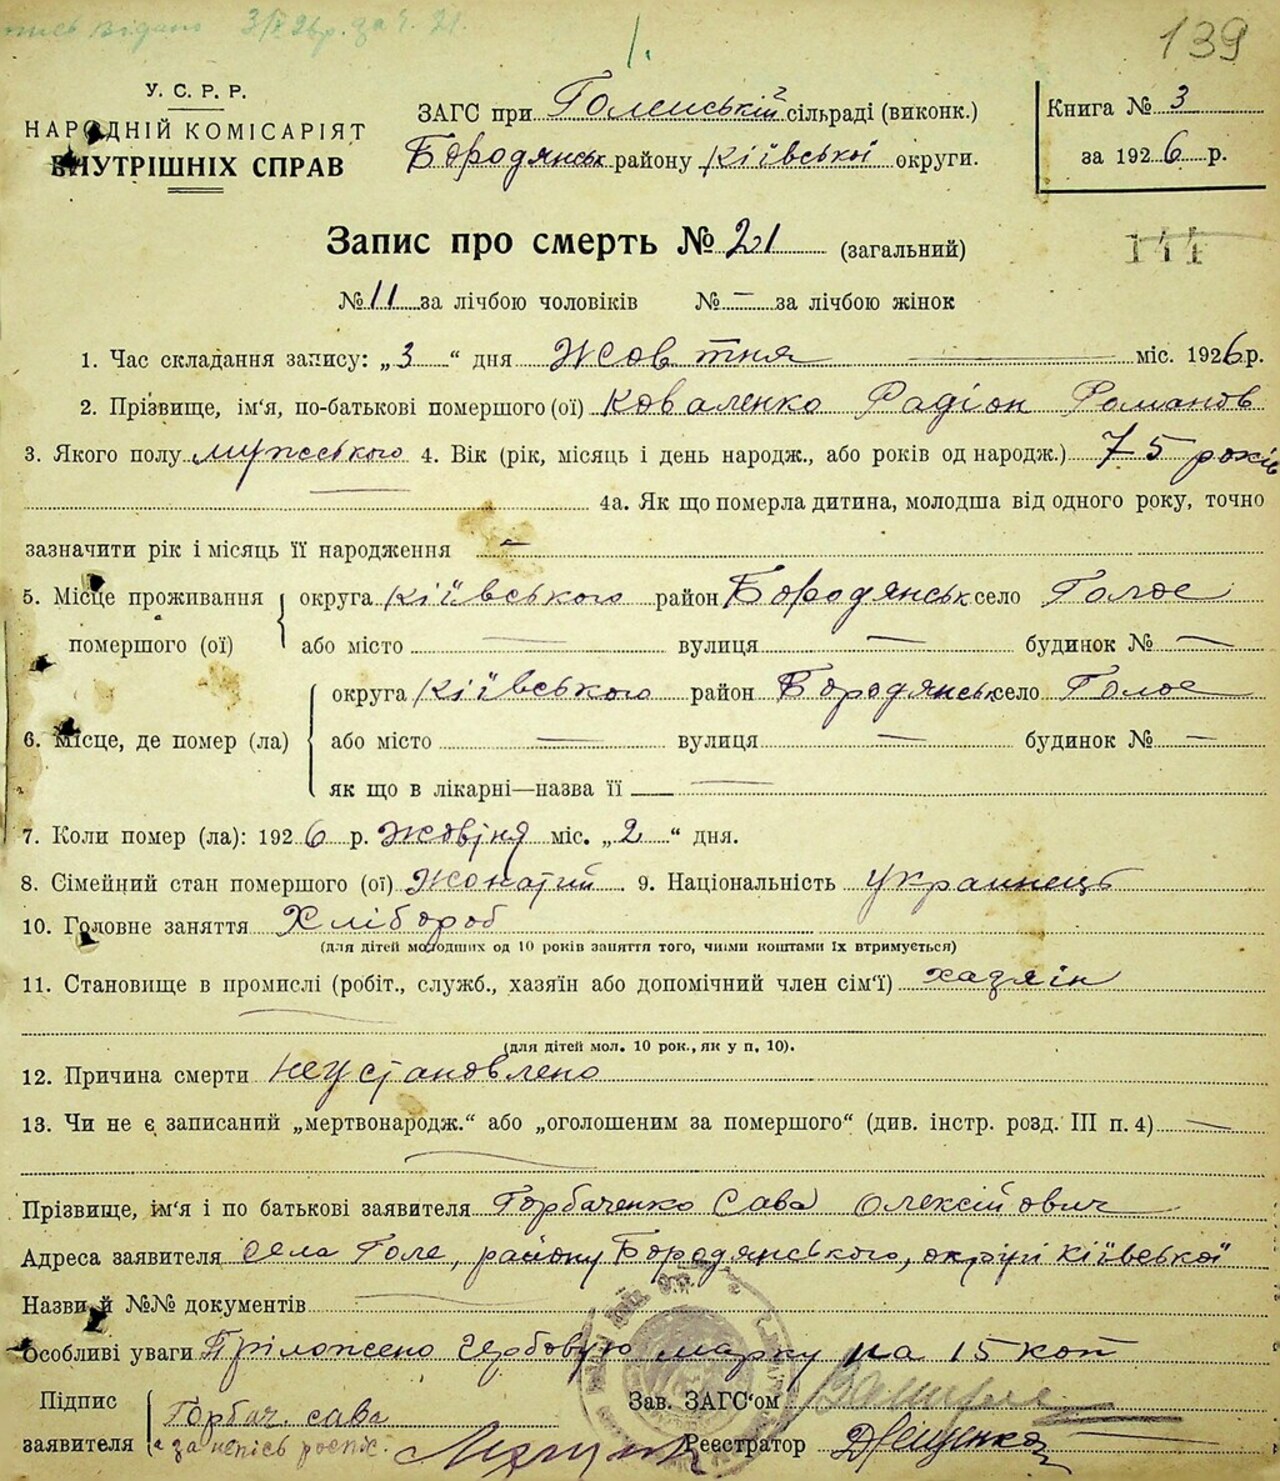 пись видано 3/X 26 р. за ч. 21.
1.
139
У. С. Р. Р.
НАРОДНІЙ КОМІСАРІЯТ
ВНУТРІШНІХ СПРАВ
ЗАГС при Голенській сільраді (виконк.)
Бородянськ району Київської округи.
Книга № 3
за 1926 р.
Запис про смерть № 21 (загальний)
144
№ 11 за лічбою чоловіків № — за лічбою жінок
1. Час складання запису: „3“ дня Жовтня міс. 1926 р.
2. Прізвище, ім'я, по-батькові помершого (ої) Коваленко Радіон Романов
3. Якого полу мужського 4. Вік (рік, місяць і день народж., або років од народж.) 75 років
4а. Як що померла дитина, молодша від одного року, точно
зазначити рік і місяць її народження —
5. Місце проживання помершого (ої) округа Київського район Бородянськ село Голое
або місто — вулиця — будинок № —
6. Місце, де помер (ла) округа Київського район Бородянськ село Голое
або місто — вулиця — будинок № —
як що в лікарні—назва її —
7. Коли помер (ла): 1926 р. Жовтня міс. „2“ дня.
8. Сімейний стан помершого (ої) Жонатий 9. Національність Украинець
10. Головне заняття Хлібороб
(для дітей молодших од 10 років заняття того, чиїми коштами їх втримується)
11. Становище в промислі (робіт., служб., хазяїн або допомічний член сім'ї) хазяін
(для дітей мол. 10 рок., як у п. 10).
12. Причина смерти неустановлено
13. Чи не є записаний „мертвонародж.“ або „оголошеним за помершого“ (див. інстр. розд. III п. 4) —
Прізвище, ім'я і по батькові заявителя Горбаченко Сава Олексійович
Адреса заявителя села Голе, району Бородянського, округі Київської
Назви й №№ документів
Особливі уваги Приложено Гербовую марку на 15 коп
Підпис заявителя Горбач. сава
Зав. ЗАГС'ом
за непісь роспіс.
Реестратор